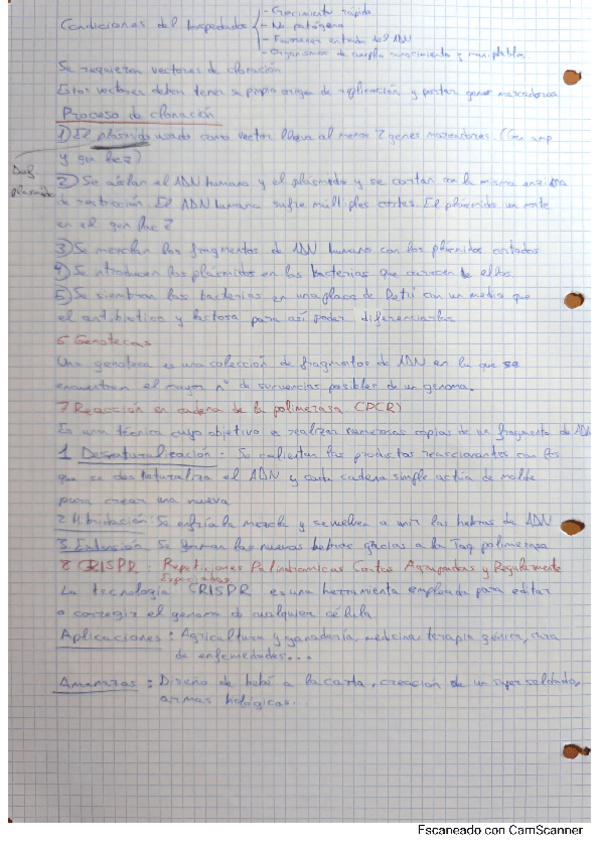 Condiciones del hospedador
- Crecimiento rápido
- No patógeno
- Favorecer entrada del ADN
- Organismos de amplio conocimiento y manipulables
Se requieren vectores de clonación
Estos vectores deben tener su propio origen de replicación y portar genes marcadores
Proceso de clonación
1) El plásmido usado como vector lleva al menos 2 genes marcadores. (Gen amp
y gen lac Z)
Def plásmido
2) Se aíslan el ADN humano y el plásmido y se cortan con la misma enzima
de restricción. El ADN humano sufre múltiples cortes. El plásmido un corte
en el gen lac Z
3) Se mezclan los fragmentos de ADN humano con los plásmidos cortados
4) Se introducen los plásmidos en las bacterias que carecen de ellos.
5) Se siembran las bacterias en una placa de Petri con un medio que
el antibiotico y lactosa para así poder diferenciarlas
6 Genotecas
Una genoteca es una colección de fragmentos de ADN en la que se
encuentran el mayor nº de secuencias posibles de un genoma.
7 Reacción en cadena de la polimerasa (PCR)
Es una técnica cuyo objetivo es realizar numerosas copias de un fragmento de ADN
1 Desnaturalización - Se calientan los productos reaccionantes con los
que se desnaturaliza el ADN y cada cadena simple actúa de molde
para crear una nueva
2 Hibridación: Se enfría la mezcla y se vuelven a unir las hebras de ADN
3 Extensión Se forman las nuevas hebras gracias a la Taq polimerasa
8 CRISPR: Repeticiones Palindromicas Cortas Agrupadas y Regularmente
Espaciadas
La tecnología CRISPR es una herramienta empleada para editar
o corregir el genoma de cualquier célula
Aplicaciones: Agricultura y ganadería, medicina terapia génica, cura
de enfermedades...
Amenazas: Diseño de bebé a la carta, creación de un super soldado,
armas biológicas...
Escaneado con CamScanner